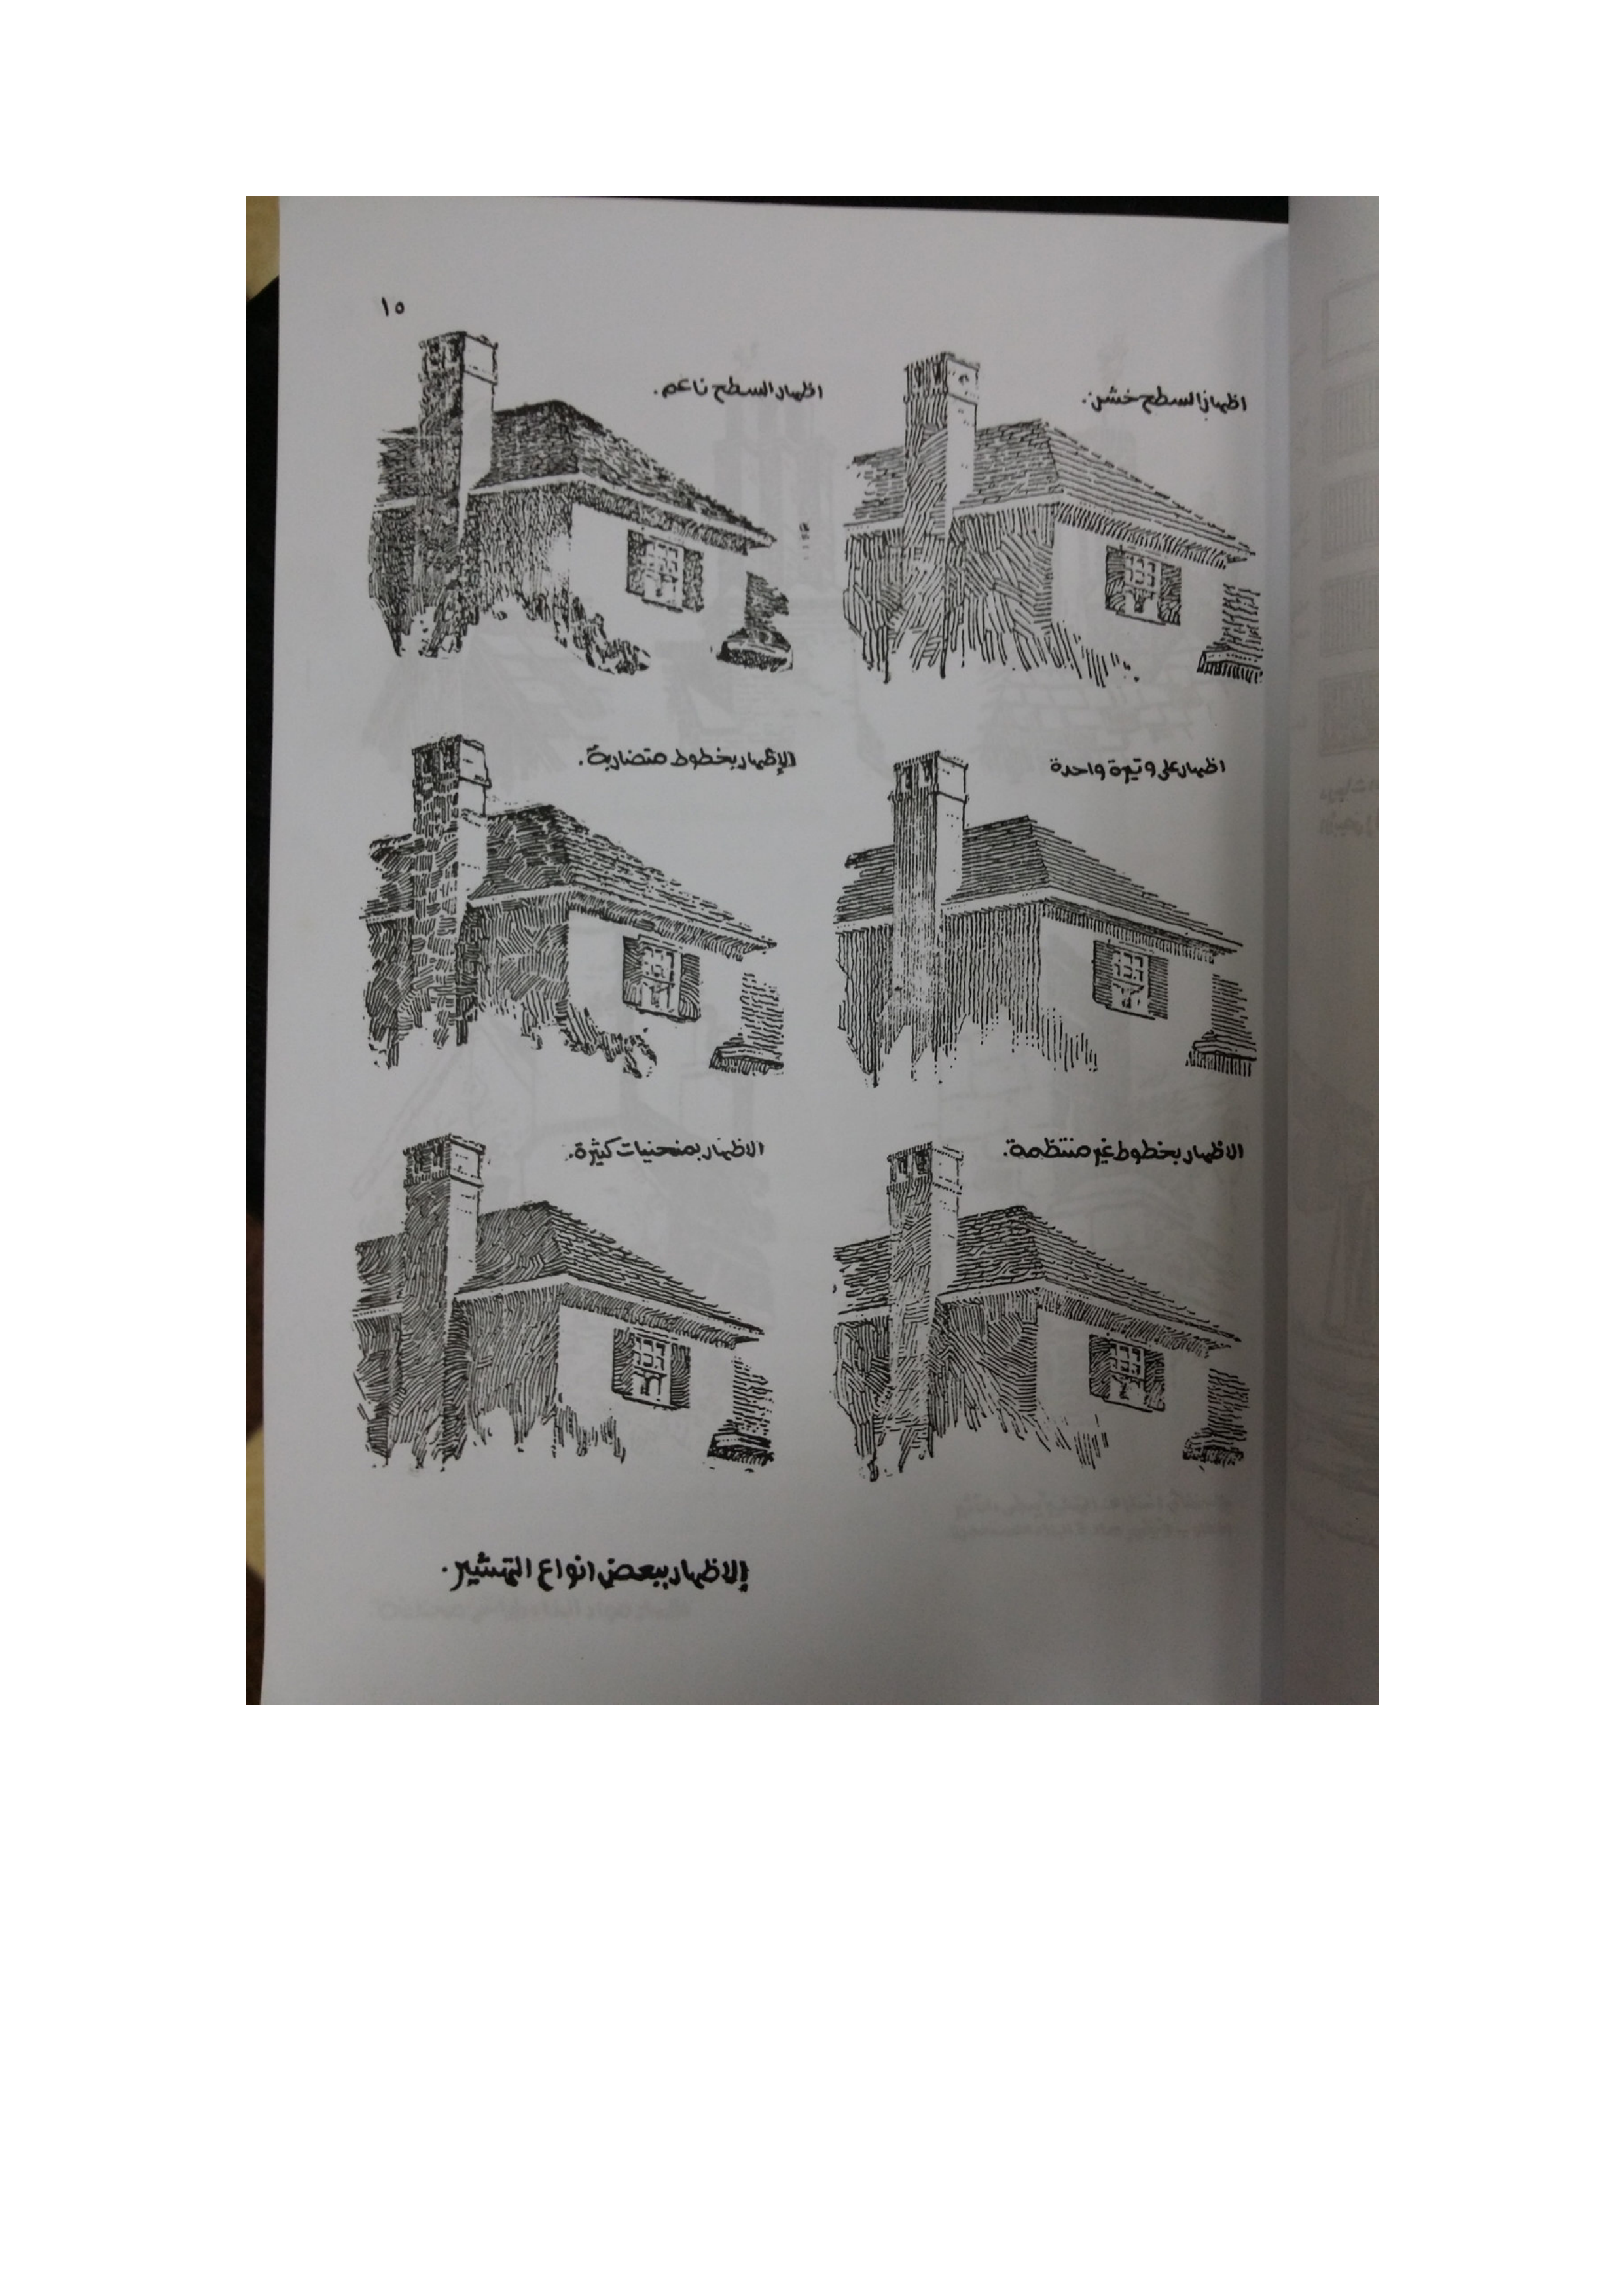 ١٥
اظهار السطح خشن.
اظهار السطح ناعم.
اظهار على وتيرة واحدة
الإظهار بخطوط متضاربة.
الاظهار بخطوط غير منتظمة.
الاظهار بمنحنيات كثيرة.
إلاظهار ببعض انواع التهشير.